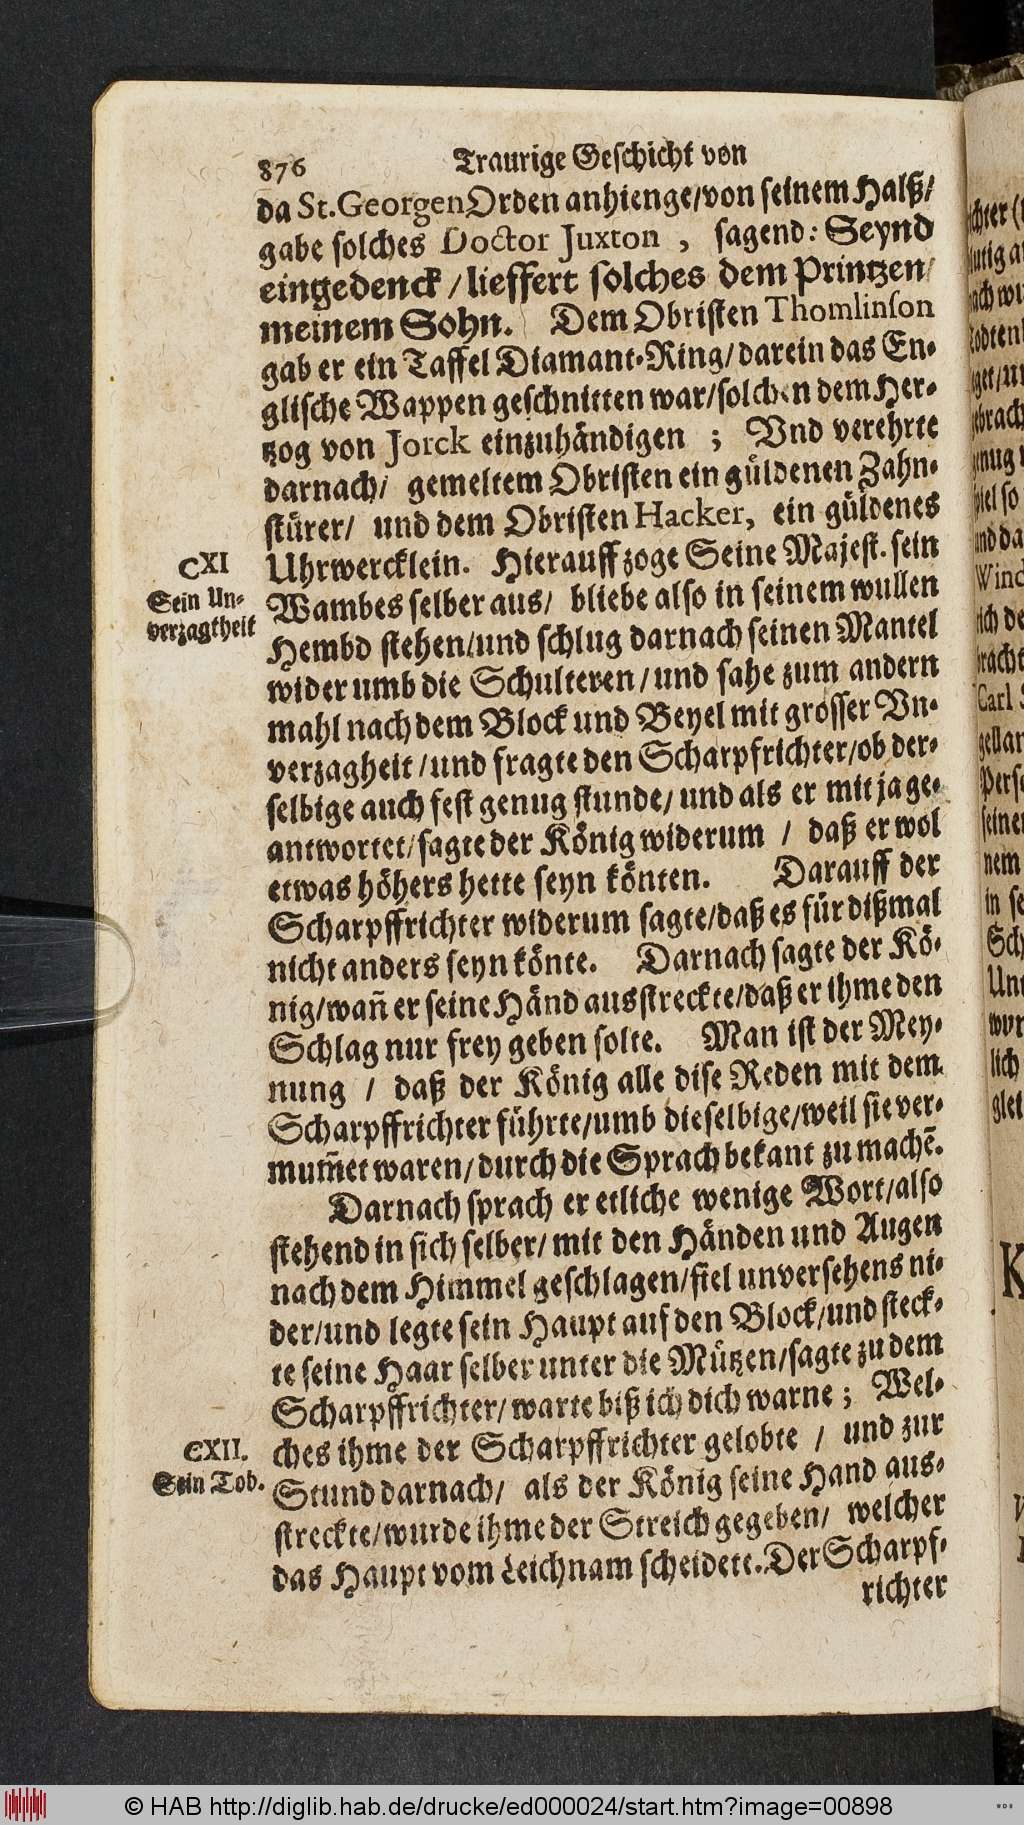 876 Traurige Geschicht von
da St. Georgen Orden anhienge/von seinem Halß/
gabe solches Doctor Juxton , sagend: Seynd
eingedenck / lieffert solches dem Printzen/
meinem Sohn. Dem Obristen Thomlinson
gab er ein Taffel Diamant-Ring/darein das En-
glische Wappen geschnitten war/solchen dem Her-
tzog von Jorck einzuhändigen ; Vnd verehrte
darnach/ gemeltem Obristen ein güldenen Zahn-
stürer/ und dem Obristen Hacker, ein güldenes
CXI
Sein Un-
verzagtheit
Uhrwercklein. Hierauff zoge Seine Majest. sein
Wambes selber aus/ bliebe also in seinem wullen
Hembd stehen/und schlug darnach seinen Mantel
wider umb die Schulteren/und sahe zum andern
mahl nach dem Block und Beyel mit grosser Vn-
verzagheit/und fragte den Scharpfrichter/ob der-
selbige auch fest genug stunde/und als er mit ja ge-
antwortet/sagte der König widerum / daß er wol
etwas höhers hette seyn könten. Darauff der
Scharpffrichter widerum sagte/daß es für dißmal
nicht anders seyn könte. Darnach sagte der Kö-
nig/wañ er seine Händ ausstreckte/daß er ihme den
Schlag nur frey geben solte. Man ist der Mey-
nung / daß der König alle dise Reden mit dem
Scharpffrichter führte/umb dieselbige/weil sie ver-
mum̃et waren/durch die Sprach bekant zu machẽ.
Darnach sprach er etliche wenige Wort/also
stehend in sich selber/mit den Händen und Augen
nach dem Himmel geschlagen/fiel unversehens ni-
der/und legte sein Haupt auf den Block/und steck-
te seine Haar selber unter die Mützen/sagte zu dem
Scharpffrichter/warte biß ich dich warne; Wel-
CXII.
Sein Tod.
ches ihme der Scharpffrichter gelobte / und zur
Stund darnach/ als der König seine Hand aus-
streckte/wurde ihme der Streich gegeben/ welcher
das Haupt vom Leichnam scheidete. Der Scharpf-
richter
© HAB http://diglib.hab.de/drucke/ed000024/start.htm?image=00898